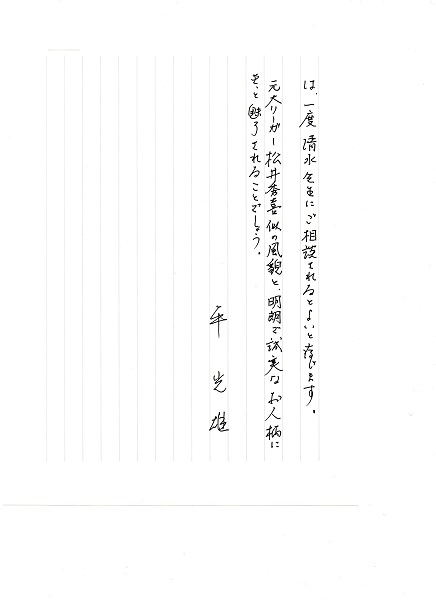 は、一度清水先生にご相談されるとよいと存じます。
元大リーガー松井秀喜似の風貌と、明朗で誠実なお人柄に
きっと魅了されることでしょう。
平 光雄